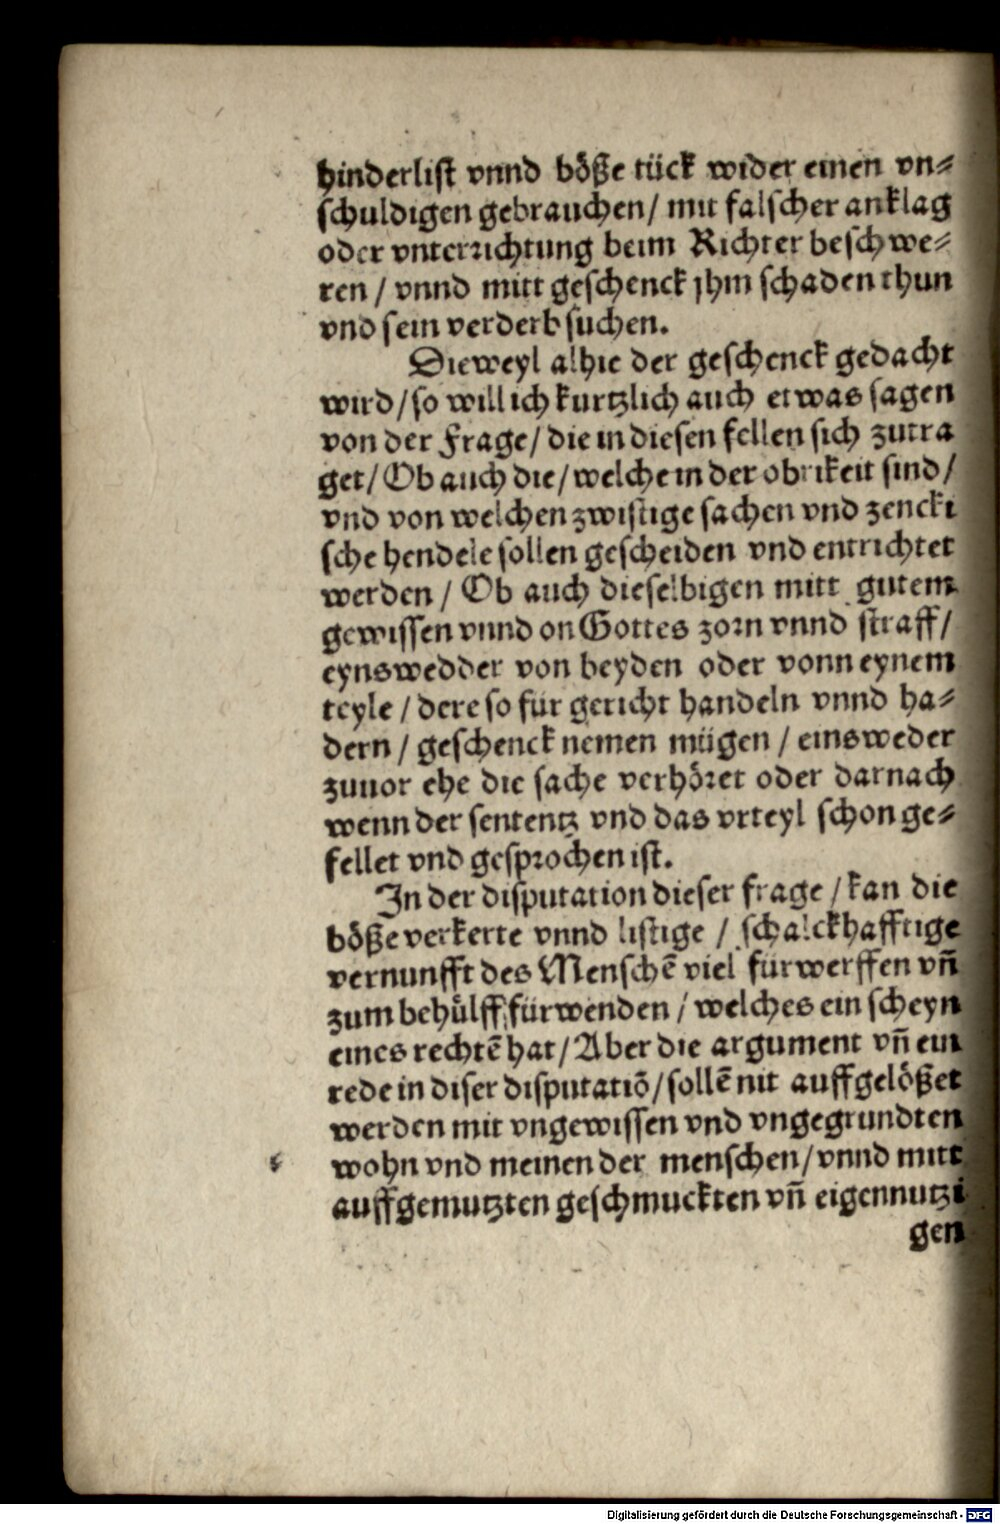 hinderlist vnnd bőße tück wider einen vn⸗
schuldigen gebrauchen/ mit falscher anklag
oder vnterrichtung beim Richter beschwe⸗
ren / vnnd mitt geschenck jhm schaden thun
vnd sein verderb suchen.
Dieweyl alhie der geschenck gedacht
wird/so will ich kurtzlich auch etwas sagen
von der Frage/ die in diesen fellen sich zutra
get/ Ob auch die/ welche in der obrikeit sind/
vnd von welchen zwistige sachen vnd zencki
sche hendele sollen gescheiden vnd entrichtet
werden / Ob auch dieselbigen mitt gutem
gewissen vnnd on Gottes zorn vnnd straff/
eynswedder von beyden oder vonn eynem
teyle / dere so für gericht handeln vnnd ha⸗
dern / geschenck nemen mügen / einsweder
zuuor ehe die sache verhöret oder darnach
wenn der sententz vnd das vrteyl schon ge⸗
fellet vnd gesprochen ist.
In der disputation dieser frage / kan die
böße verkerte vnnd listige / schalckhafftige
vernunfft des Menschē viel fürwerffen vñ
zum behülff fürwenden / welches ein scheyn
eines rechtē hat/ Aber die argument vñ ein
rede in diser disputatiō/ sollē nit auffgelößet
werden mit vngewissen vnd vngegrundten
wohn vnd meinen der menschen/ vnnd mitt
auffgemutzten geschmuckten vñ eigennutzi
gen
Digitalisierung gefördert durch die Deutsche Forschungsgemeinschaft - DFG